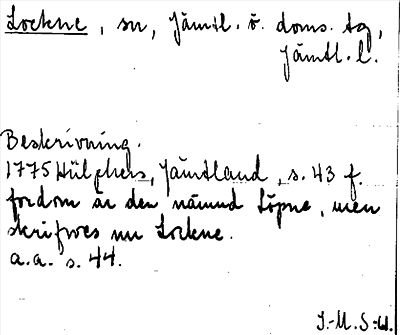 Lockne, sn, Jämtl. ö. doms. tg,
Jämtl. l.
Beskrivning.
1775 Hülphers, Jämtland, s. 43 f.
fordom är den nämnd Löpne, men
skrifwes nu Lockne.
a.a. s. 44.
I.-M. S-d.